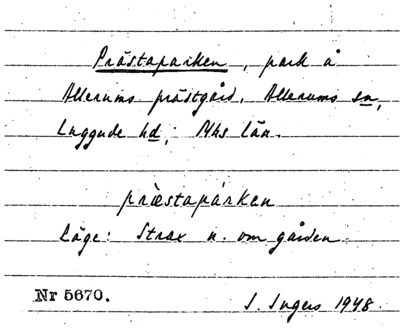 Prästaparken, park å
Allerums prästgård, Allerums sn,
Luggude hd; Mhs län.
præstapárken
Läge: Strax n. om gården.
Nr 5670.
I. Ingers 1948.